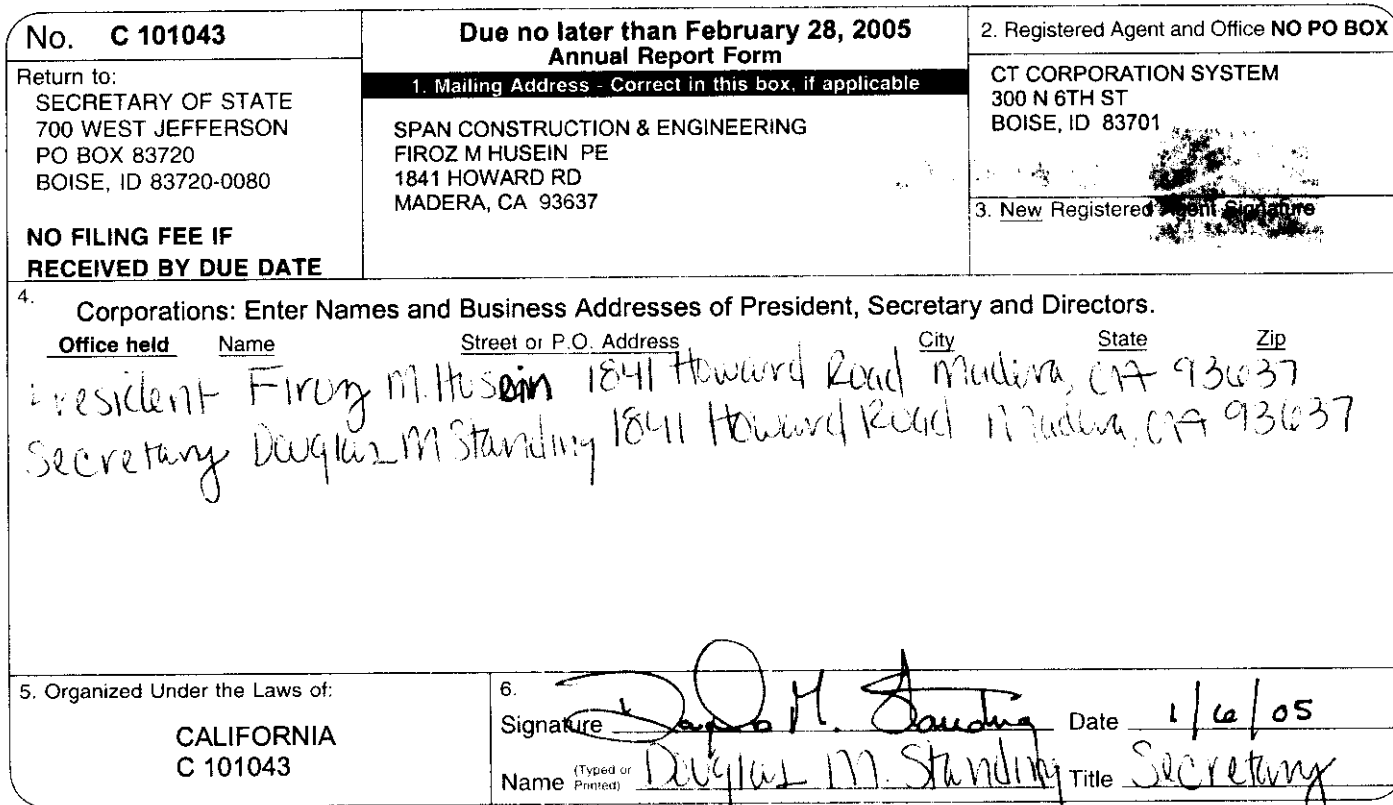 No. C 101043
Return to:
SECRETARY OF STATE
700 WEST JEFFERSON
PO BOX 83720
BOISE, ID 83720-0080
NO FILING FEE IF
RECEIVED BY DUE DATE
Due no later than February 28, 2005
Annual Report Form
1. Mailing Address - Correct in this box, if applicable
SPAN CONSTRUCTION & ENGINEERING
FIROZ M HUSEIN PE
1841 HOWARD RD
MADERA, CA 93637
2. Registered Agent and Office NO PO BOX
CT CORPORATION SYSTEM
300 N 6TH ST
BOISE, ID 83701
3. New Registered Agent Signature
4. Corporations: Enter Names and Business Addresses of President, Secretary and Directors.
Office held Name Street or P.O. Address City State Zip
President Firoz M. Husein 1841 Howard Road Madera, CA 93637
Secretary Douglas M Standing 1841 Howard Road Madera, CA 93637
5. Organized Under the Laws of:
CALIFORNIA
C 101043
6.
Signature Douglas M. Standing Date 1/6/05
Name (Typed or Printed) Douglas M. Standing Title Secretary